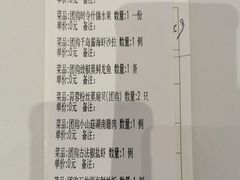 菜品:(团购)时令什锦水果 数量:1 一份
单价:0元 备注:
菜品:(团购)千岛酱海虾沙拉 数量:1 例
单价:0元 备注:
菜品:(团购)豉椒蒸鲜龙鱼 数量:1 条
单价:0元 备注:
菜品:蒜蓉粉丝蒸扇贝(团购) 数量:2 只
单价:0元 备注:
菜品:(团购)小山菇湖南腊肉 数量:1 例
单价:0元 备注:
菜品:(团购)古法椒盐虾 数量:1 例
单价:0元 备注: